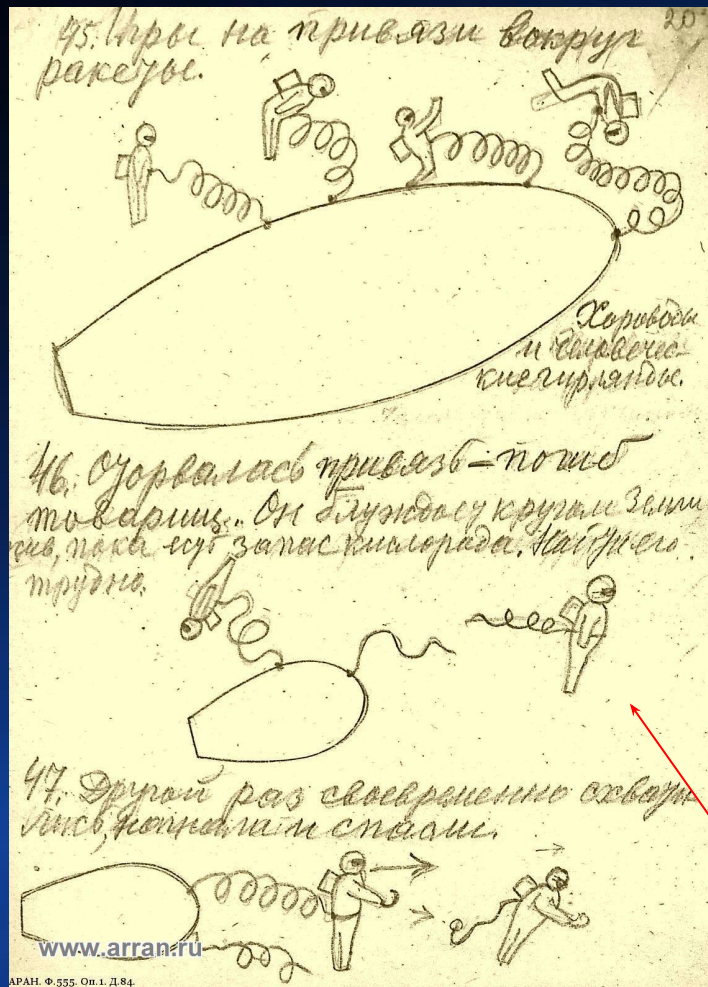 20
45. Игры на привязи вокруг
ракеты.
Хороводы
и человечес-
кие гирлянды.
46. Оторвалась привязь – погиб
товарищ. Он блуждает кругом Земли
жив, пока есть запас кислорода. Найти его
трудно.
47. Другой раз своевременно схвати-
лись, догнали и спасли.
www.arran.ru
АРАН. Ф.555. Оп.1. Д.84.